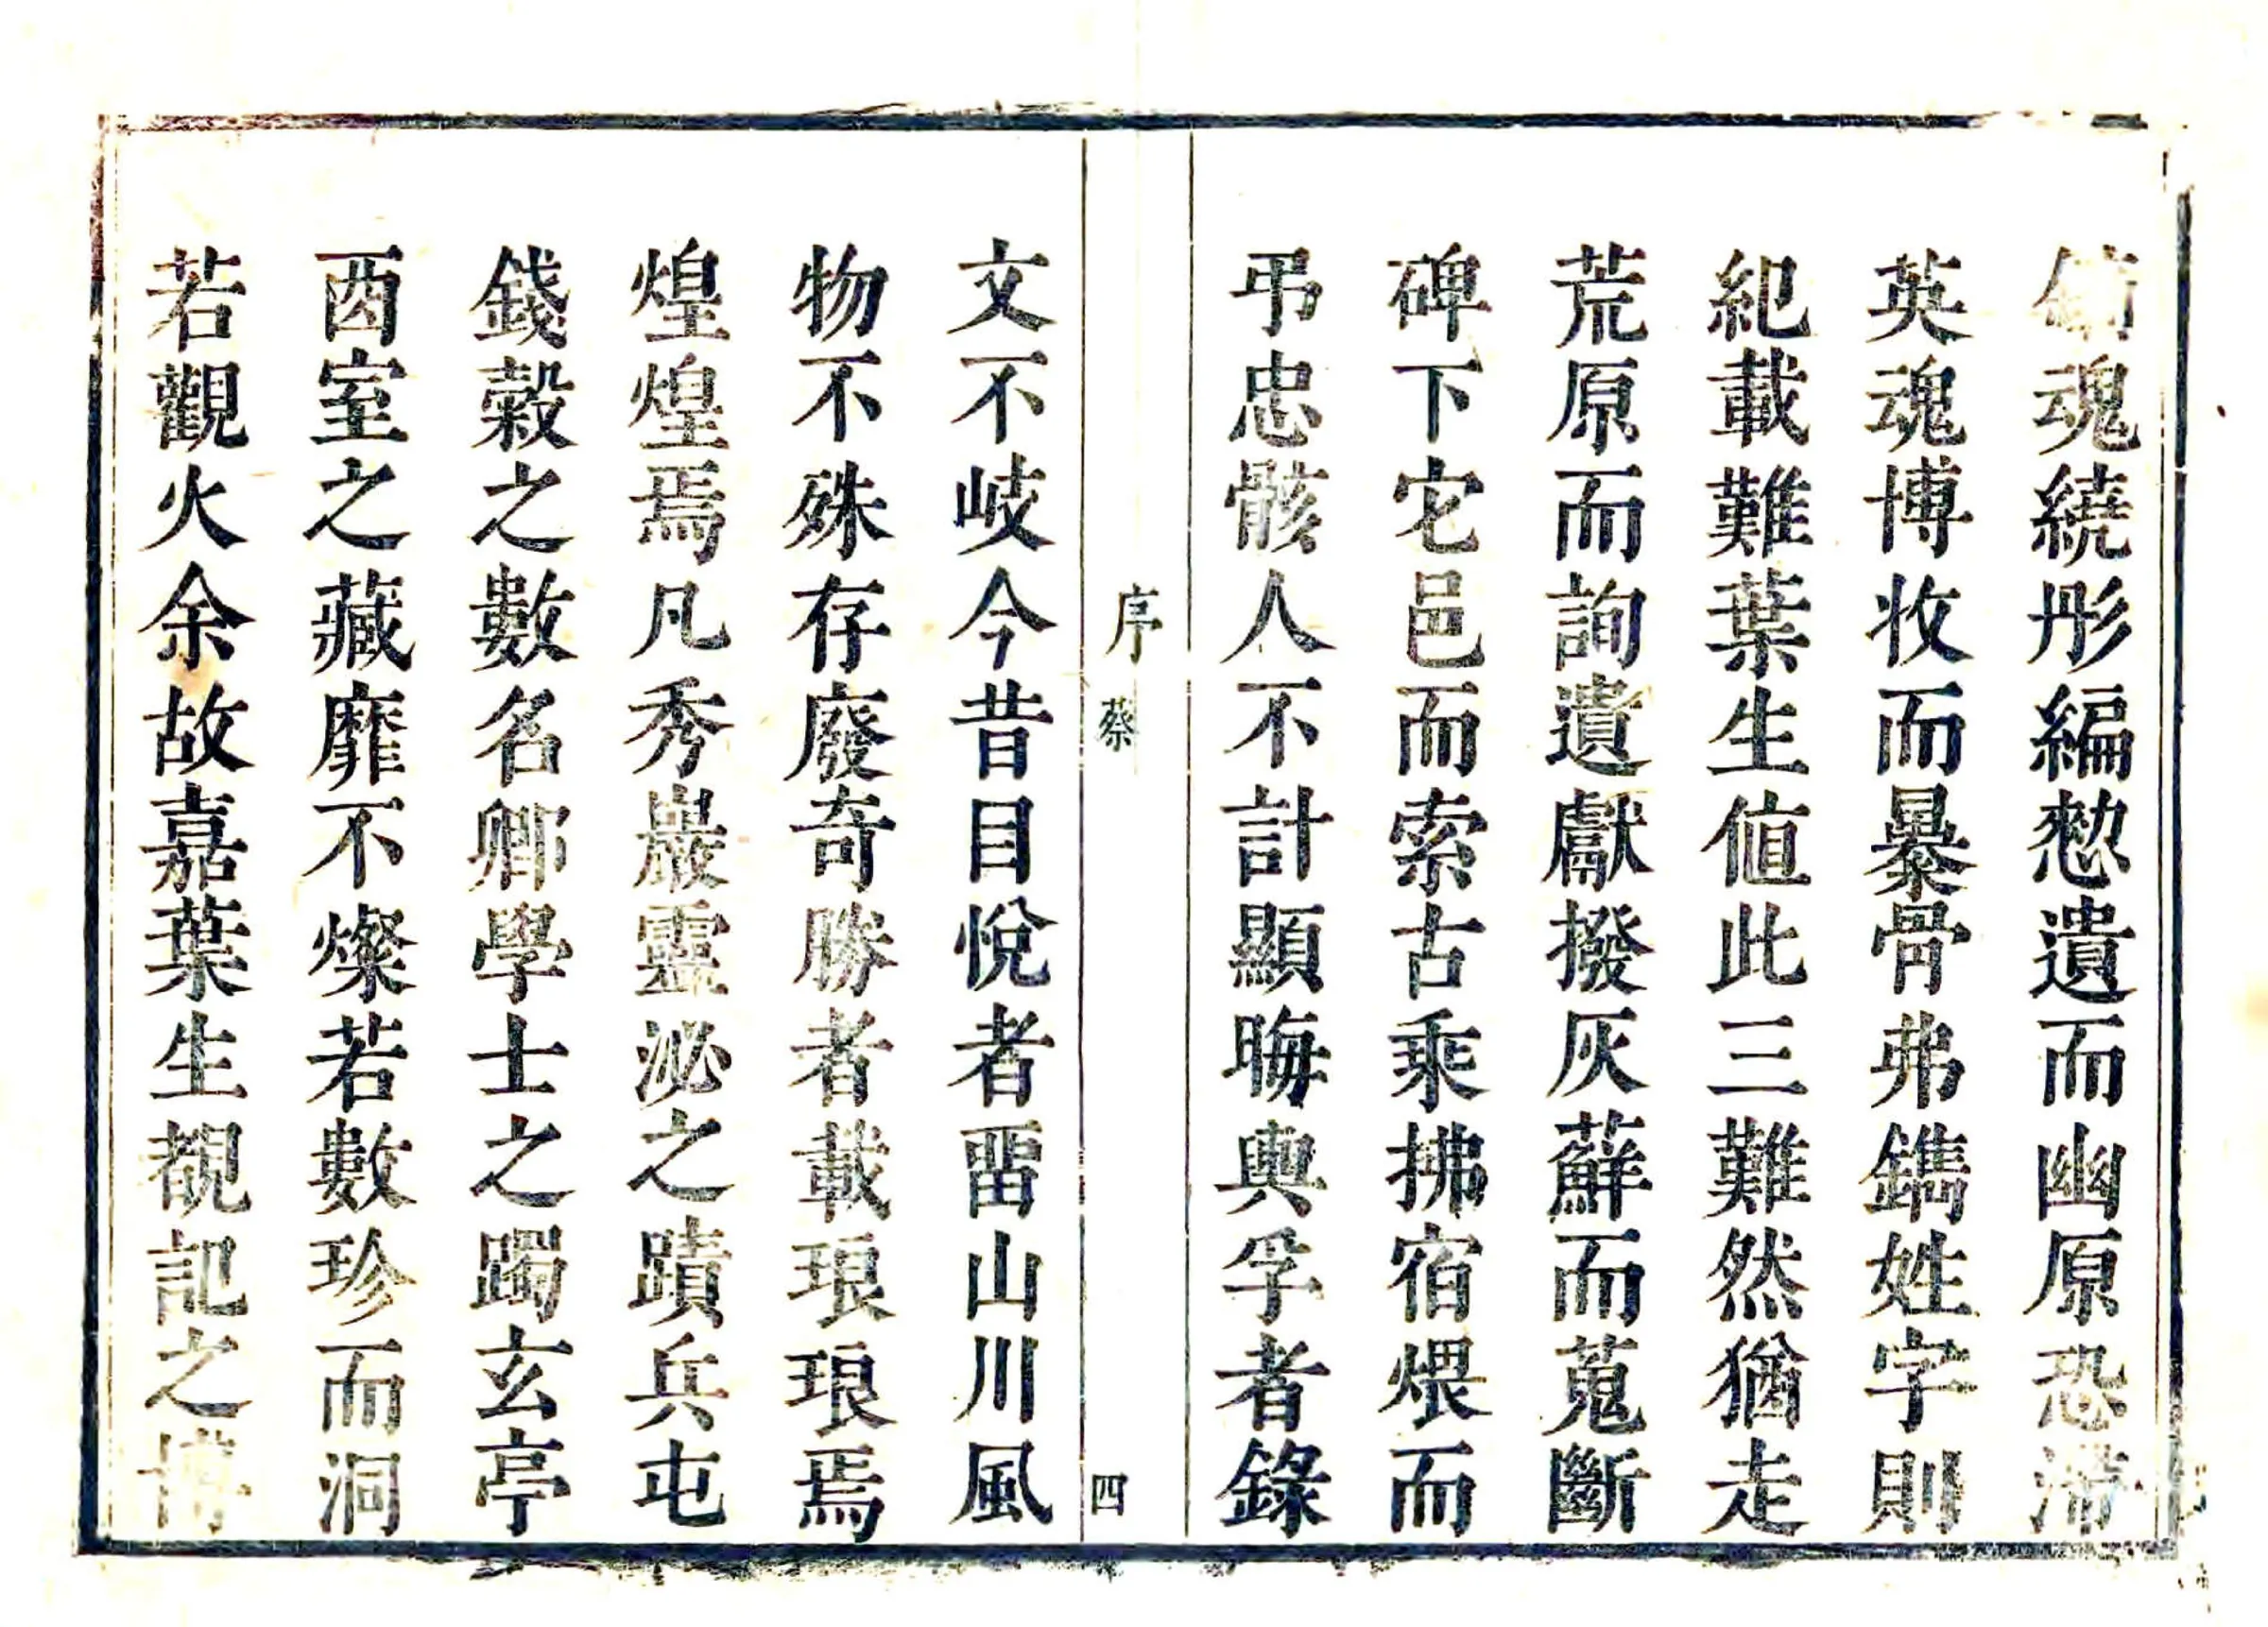 魂繞彤編愸遺而幽原恐滯
英魂博收而暴骨弗鐫姓字則
紀載難葉生值此三難然猶走
荒原而詢遺獻撥灰蘚而蒐斷
碑下它邑而索古乘拂宿煨而
弔忠骸人不計顯晦輿孚者錄
文不岐今昔目悅者畱山川風
物不殊存廢奇勝者載琅琅焉
煌煌焉凡秀巖靈泌之蹟兵屯
錢穀之數名卿學士之躅玄亭
酉室之藏靡不燦若數珍而洞
若觀火余故嘉葉生覩記之博
序 蔡 四